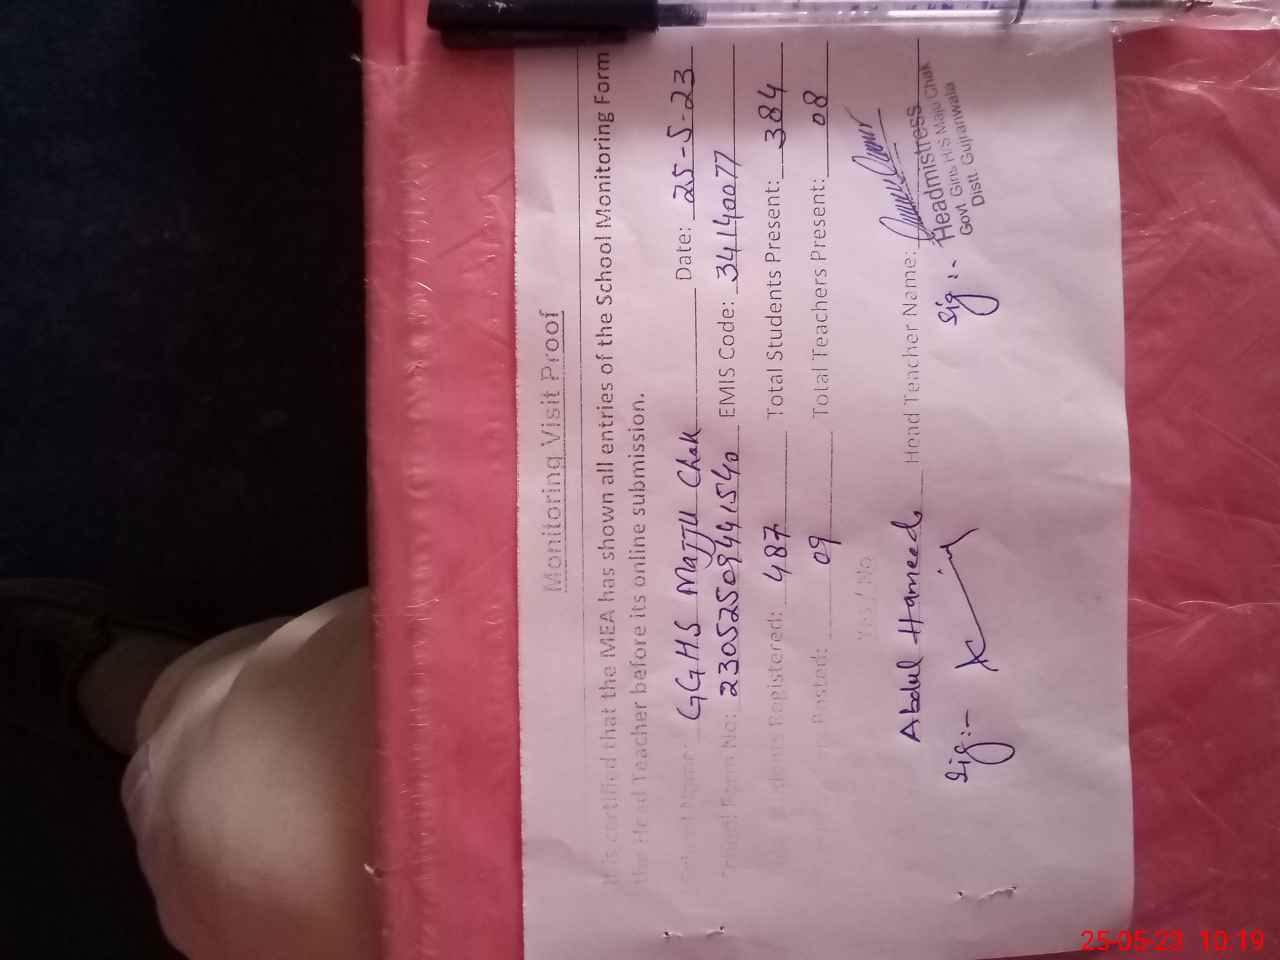 Monitoring Visit Proof
It is certified that the MEA has shown all entries of the School Monitoring Form
the Head Teacher before its online submission.
School Name: GGHS Majju Chak Date: 25-5-23
School Form No: 23052509441540 EMIS Code: 34140077
Students Registered: 487 Total Students Present: 384
Posted: 09 Total Teachers Present: 08
Yes / No
Abdul Hameed Head Teacher Name:
Sig :- Sig :-
Headmistress
Govt Girls H/S Maju Chak
Distt. Gujranwala
25-05-23 10:19